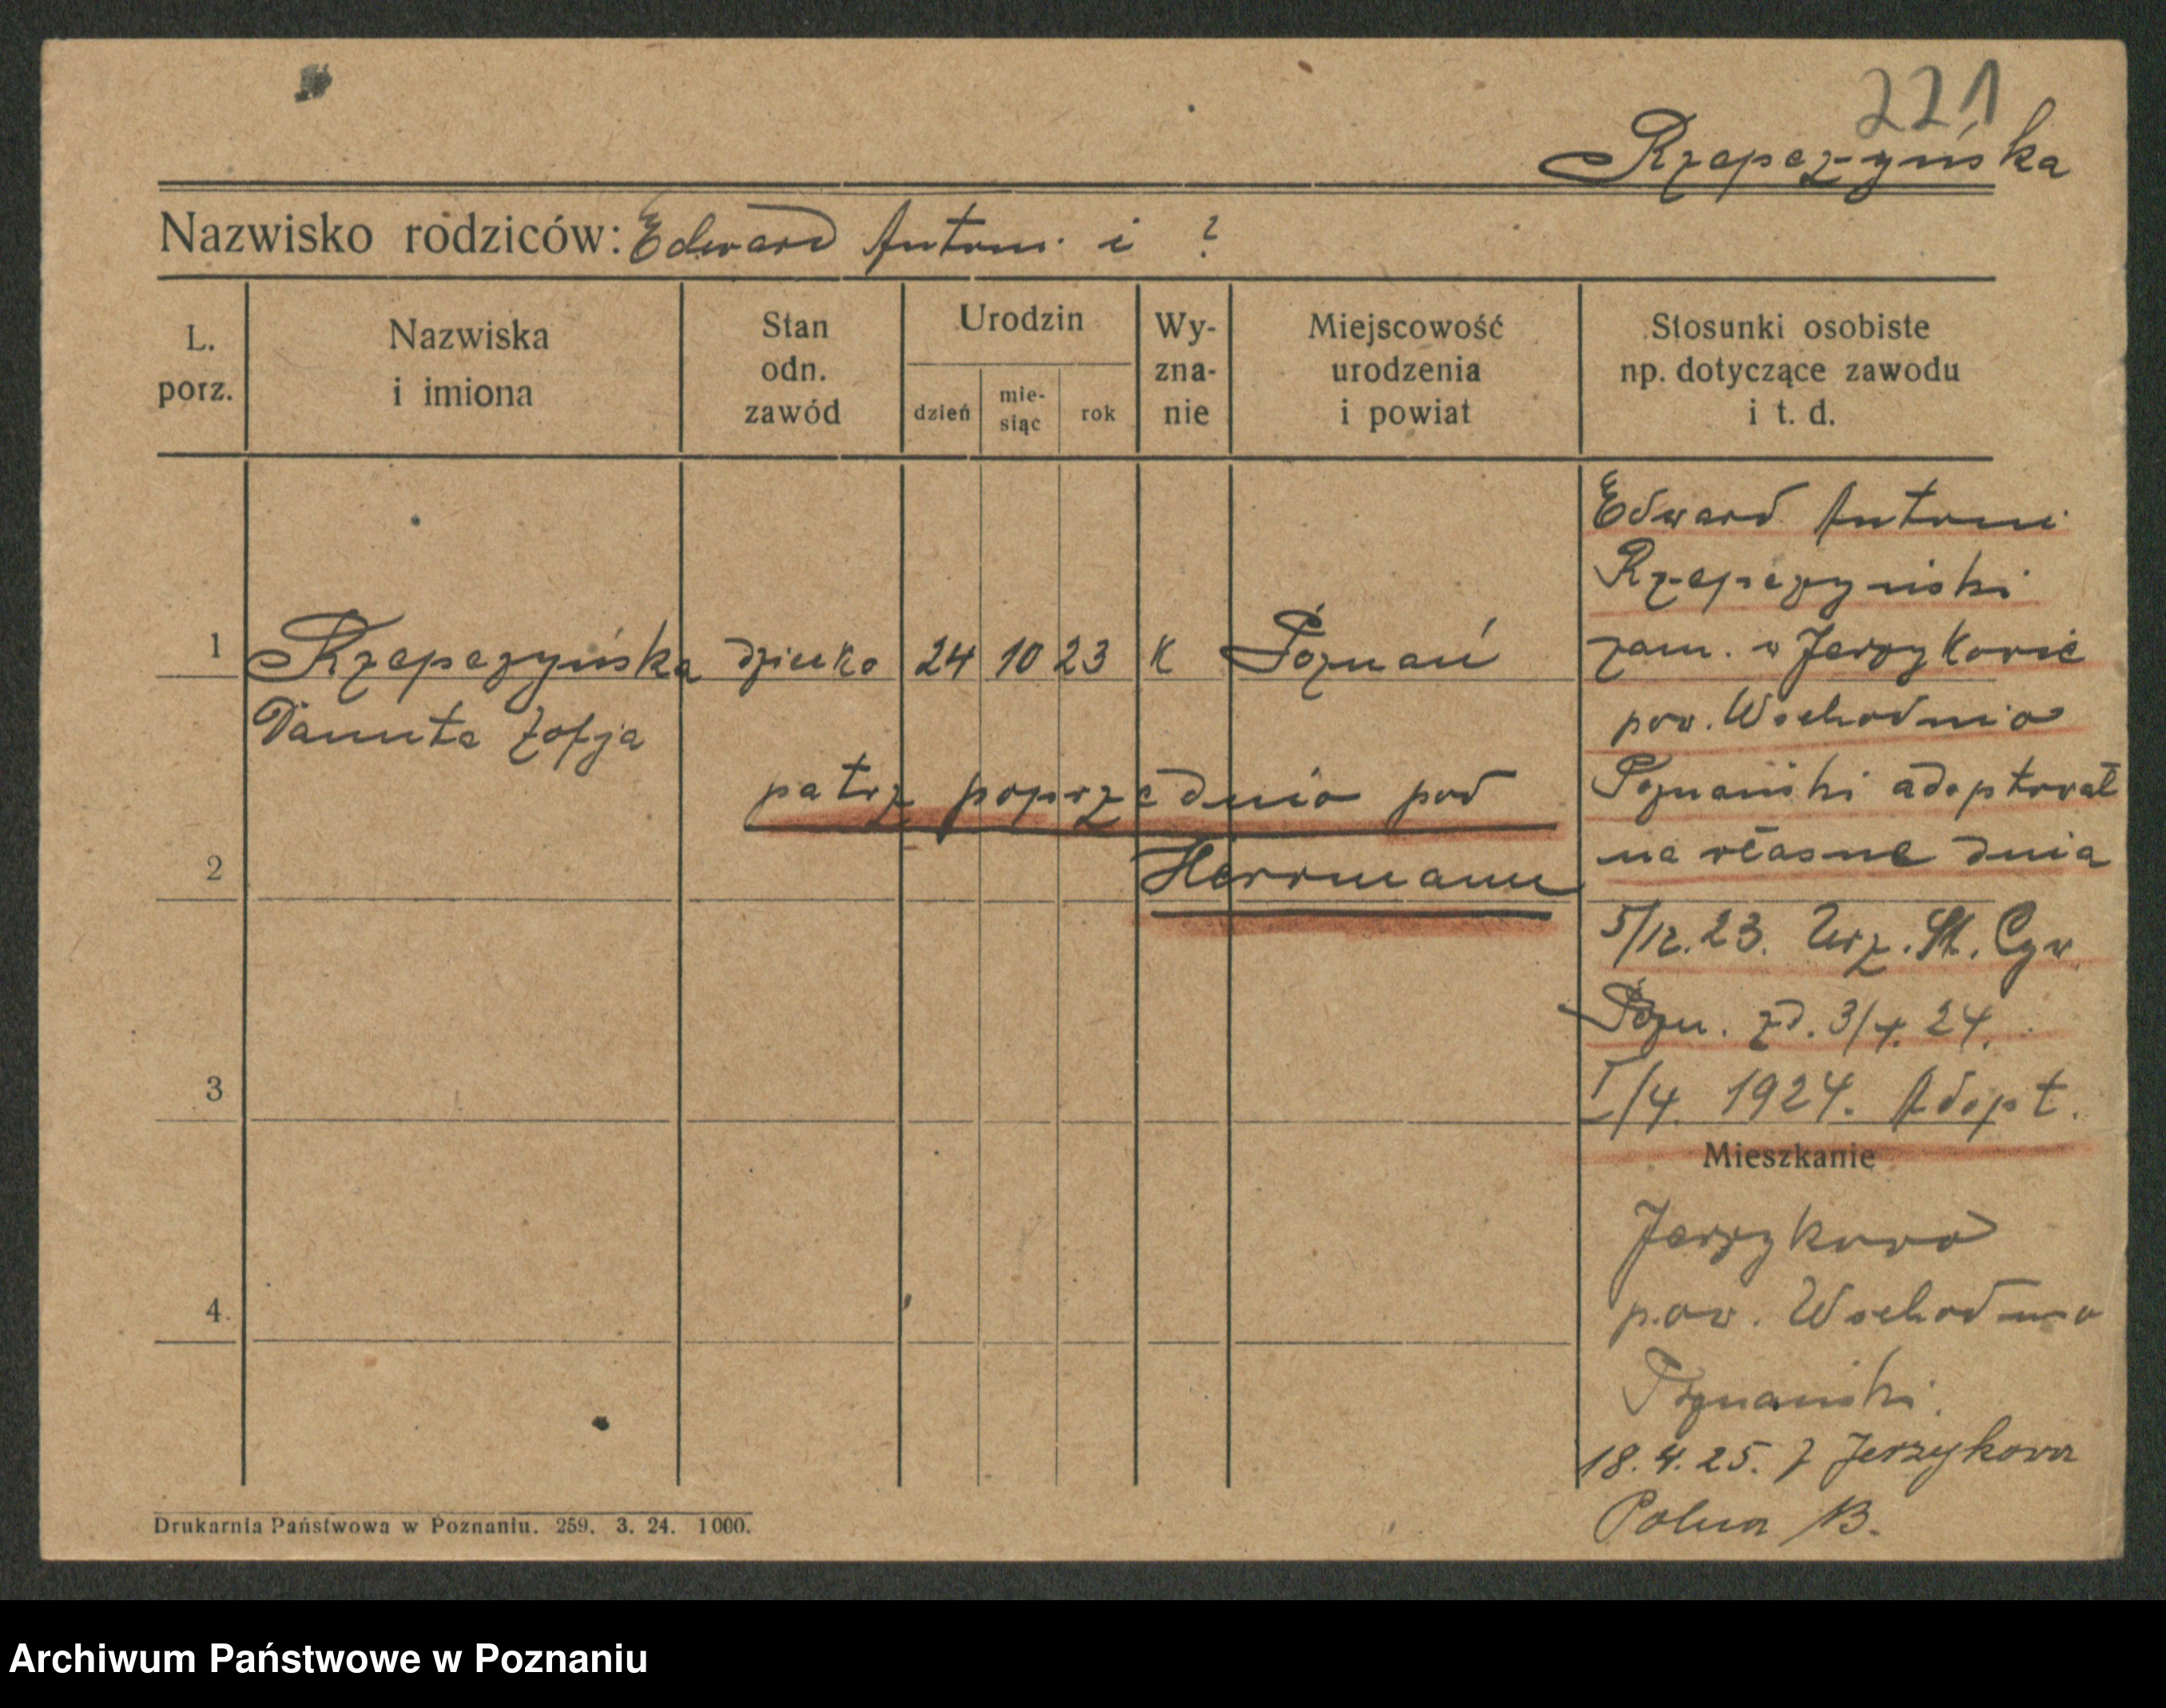 221
Rzepczyńska
Nazwisko rodziców: Edward Antoni i ?
L. porz.
Nazwiska i imiona
Stan odn. zawód
Urodzin
dzień
mie-
siąc
rok
Wy-
zna-
nie
Miejscowość
urodzenia
i powiat
Stosunki osobiste
np. dotyczące zawodu
i t. d.
1 Rzepczyńska dziecko 24 10 23 K Poznań
Danuta Zofja
patrz poprzednio pod
Herrmann
2
3
4.
Edward Antoni
Rzepczyński
zam. w Jerzykowie
pow. Wschodnio
Poznański adoptował
na własne dnia
5/12.23. Urz. St. Cyw.
Pozn. zd. 3/4. 24.
I/4. 1924. Adopt.
Mieszkanie
Jerzykowo
pow. Wschodnio
Poznański.
18.4.25. z Jerzykowa
Polna 13.
Drukarnia Państwowa w Poznaniu. 259. 3. 24. 1000.
Archiwum Państwowe w Poznaniu